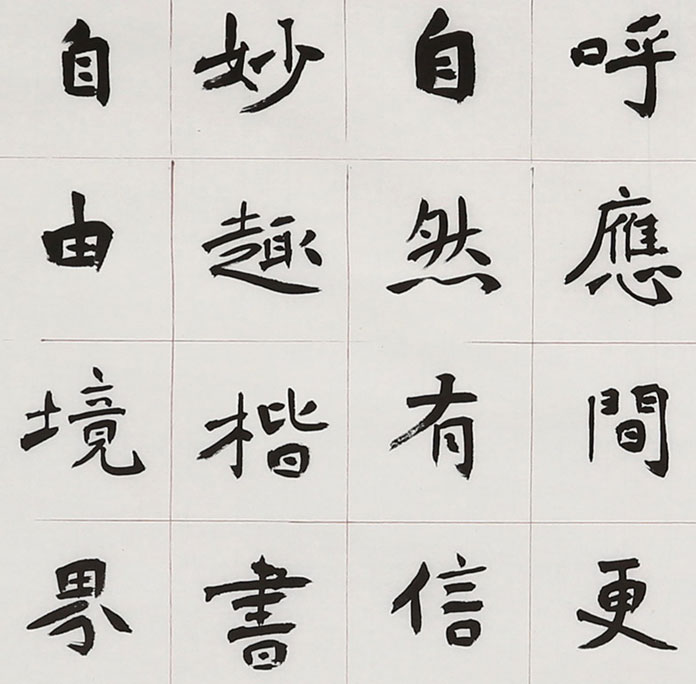 呼應間更
自然有信
妙趣楷書
自由境界